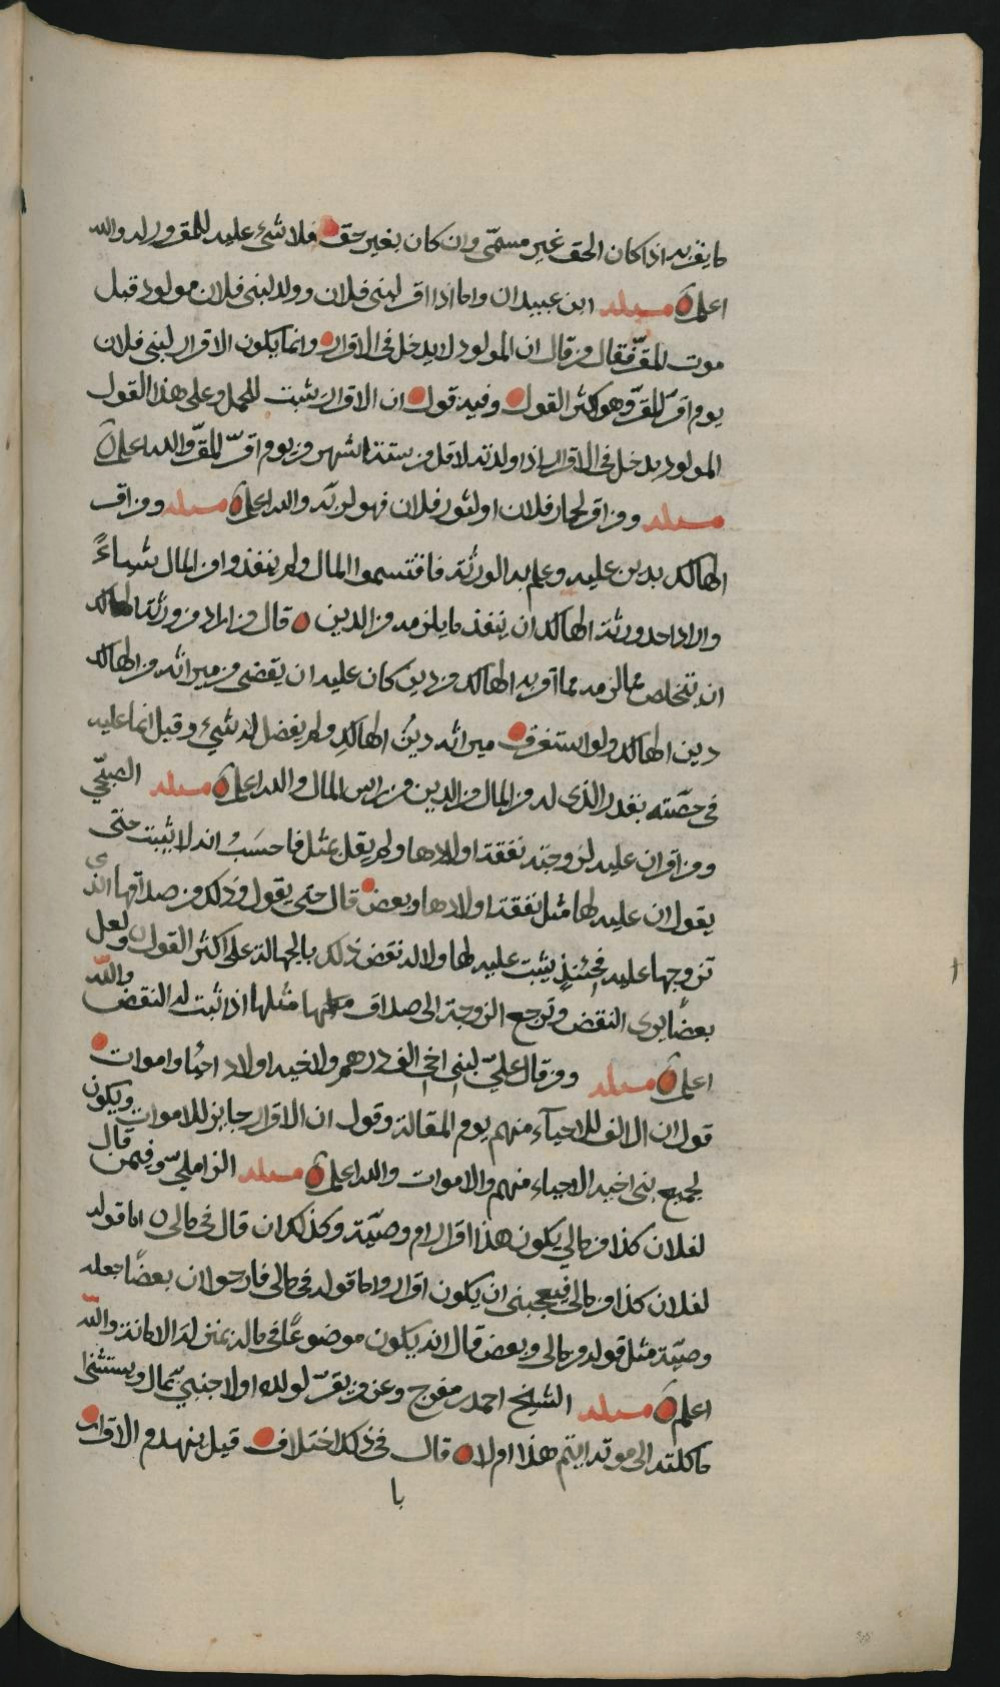 ما يقر به اذا كان الحق غير مسمّى وان كان بغير حق فلا شيء عليه للمقرور له والله
اعلم مسئلة ابن عبيدان واما اذا اقر لبني فلان وولد لبني فلان مولود قبل
موت المقرّ فقال من قال ان المولود لا يدخل في الاقرار وانما يكون الاقرار لبني فلان
يوم اقرّ المقرّ وهو اكثر القول وفيه قول ان الاقرار يثبت للحمل وعلى هذا القول
المولود يدخل في الاقرار اذا ولدته لاقل من ستة اشهر من يوم اقرّ المقرّ والله اعلم
مسئلة ومن اقر لحمار فلان او لثور فلان فهو لربّه والله اعلم مسئلة ومن اقر
الهالك بدين عليه وعلم به الورثة فاقتسموا المال ولم ينفذوا من المال شياءً
واراد احد ورثة الهالك ان ينفذ ما يلزمه من الدين قال من اراد من ورثة الهالك
ان يتخلص مما لزمه مما اقر به الهالك من دين كان عليه ان يقضي من ميراثه من الهالك
دين الهالك ولو استغرق ميراثه دينُ الهالكِ ولم يفضل له شيء وقيل انما عليه
في حصّته بقدر الذي له من المال والدين من راس المال والله اعلم مسئلة الصبحي
ومن اقر ان عليه لزوجته نفقة اولادها ولم يقل بمثل فاحسَبُ انه لا يثبت حتى
يقول ان عليه لها مثل نفقة اولادها وبعض قال حتى يقول وذلك من صداقها الذي
تزوجها عليه فحينئذٍ يثبت عليه لها ولا له نقض ذلك بالجهالة على اكثر القول ولعل
بعضًا يرى النقض وترجع الزوجة الى صداق مثلها اذا ثبت له النقض والله
اعلم مسئلة ومن قال عليّ لبني اخي الف درهم ولاخيه اولاد احياء واموات
قول ان الالف للاحيآء منهم يوم المقالة وقول ان الاقرار جايز للاموات ويكون
لجميع بني اخيه الاحياء منهم والاموات والله اعلم مسئلة الزاملي وفيمن قال
لفلان كذا من مالي يكون هذا اقرار ام وصيّة وكذلك ان قال في مالي اما قوله
لفلان كذا من مالي فيعجبني ان يكون اقرار واما قوله في مالي فارجوا ان بعضًا جعله
وصيّة مثل قوله من مالي وبعض قال انه يكون موضوعًا في ماله بمنزلة الامانة والله
اعلم مسئلة الشيخ احمد بن مفرج وعن من يقرّ لولده او لاجنبيّ بمال ويستثني
ماكلته الى موته ايتم هذا ام لا قال في ذلك اختلاف قيل ينهدم الاقرار
با